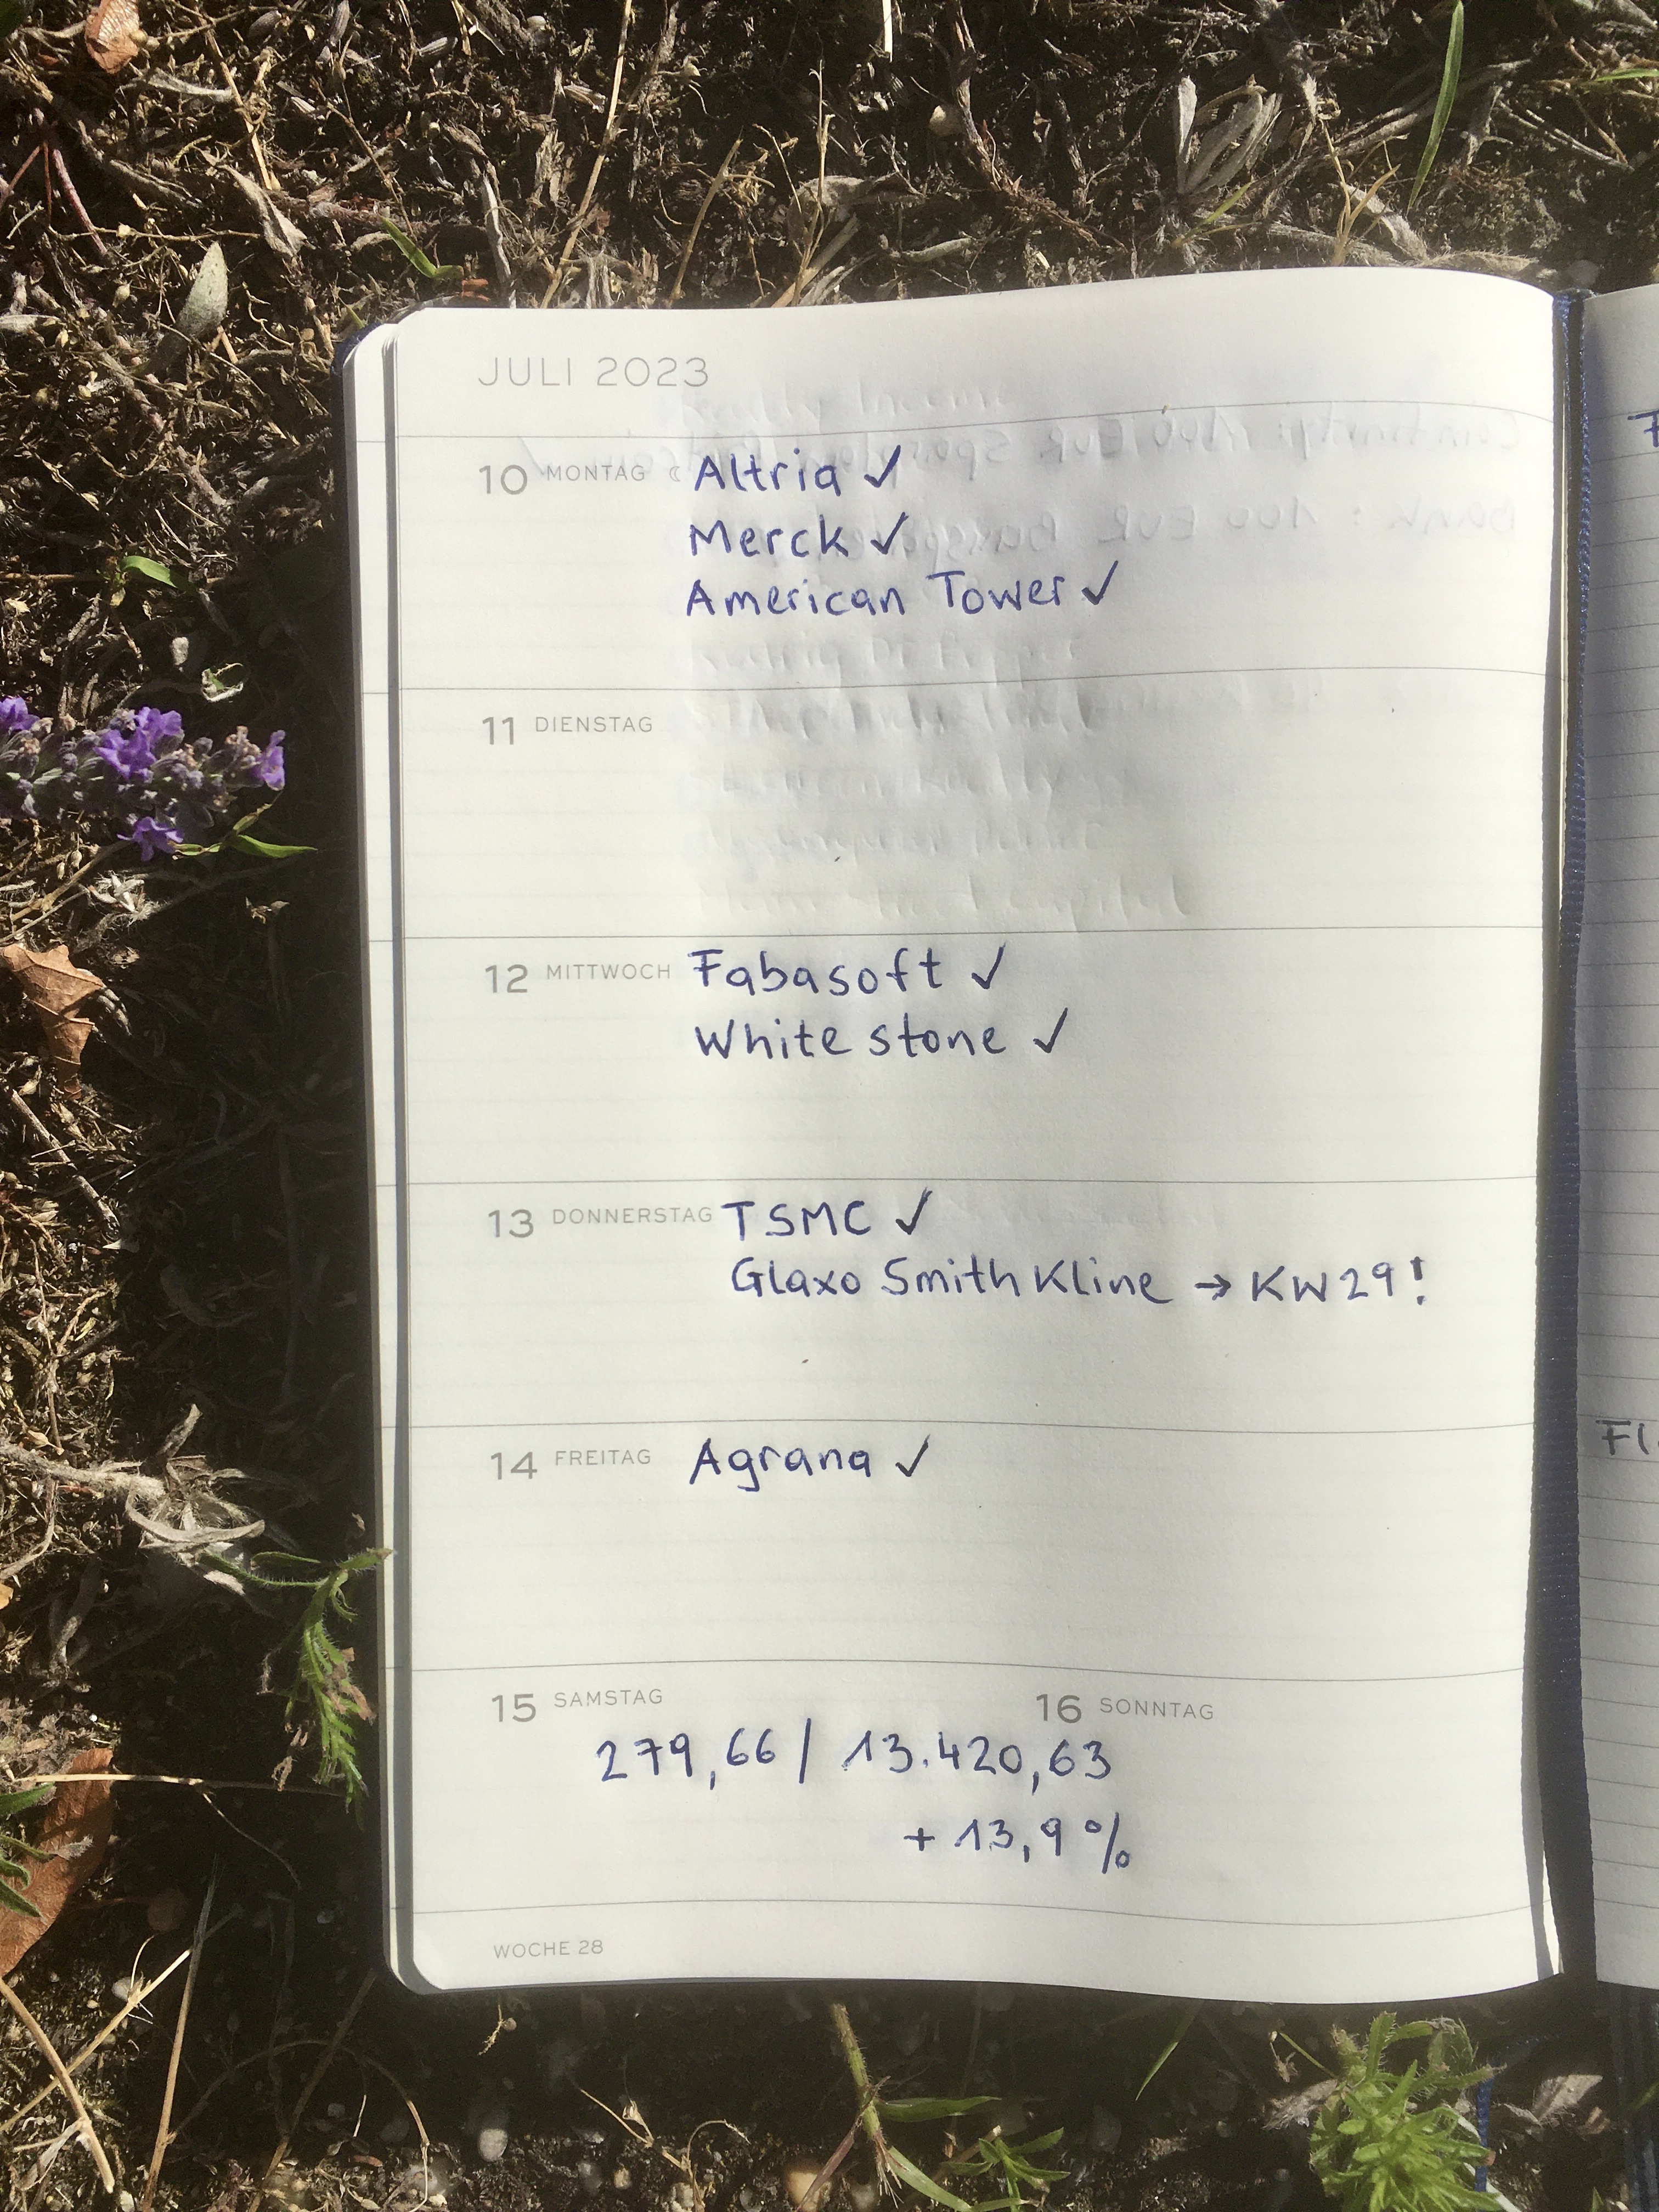 JULI 2023
10 MONTAG Altria ✓
Merck ✓
American Tower ✓
11 DIENSTAG
12 MITTWOCH Fabasoft ✓
White stone ✓
13 DONNERSTAG TSMC ✓
Glaxo Smith Kline → KW29!
14 FREITAG Agrana ✓
15 SAMSTAG 16 SONNTAG
279,66 / 13.420,63
+ 13,9 %
WOCHE 28